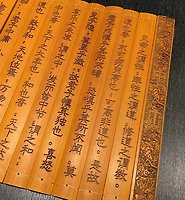 天命之謂性。率性之謂道。修道之謂教。
道也者。不可須臾離也。可離非道也。是故
君子戒慎乎其所不睹。恐懼乎其所不聞。莫
見乎隱。莫顯乎微。故君子慎其獨也。喜怒
哀樂之未發。謂之中。發而皆中節。謂之和。
中也者。天下之大本也。和也者。天下之
致中和。天地位焉。萬